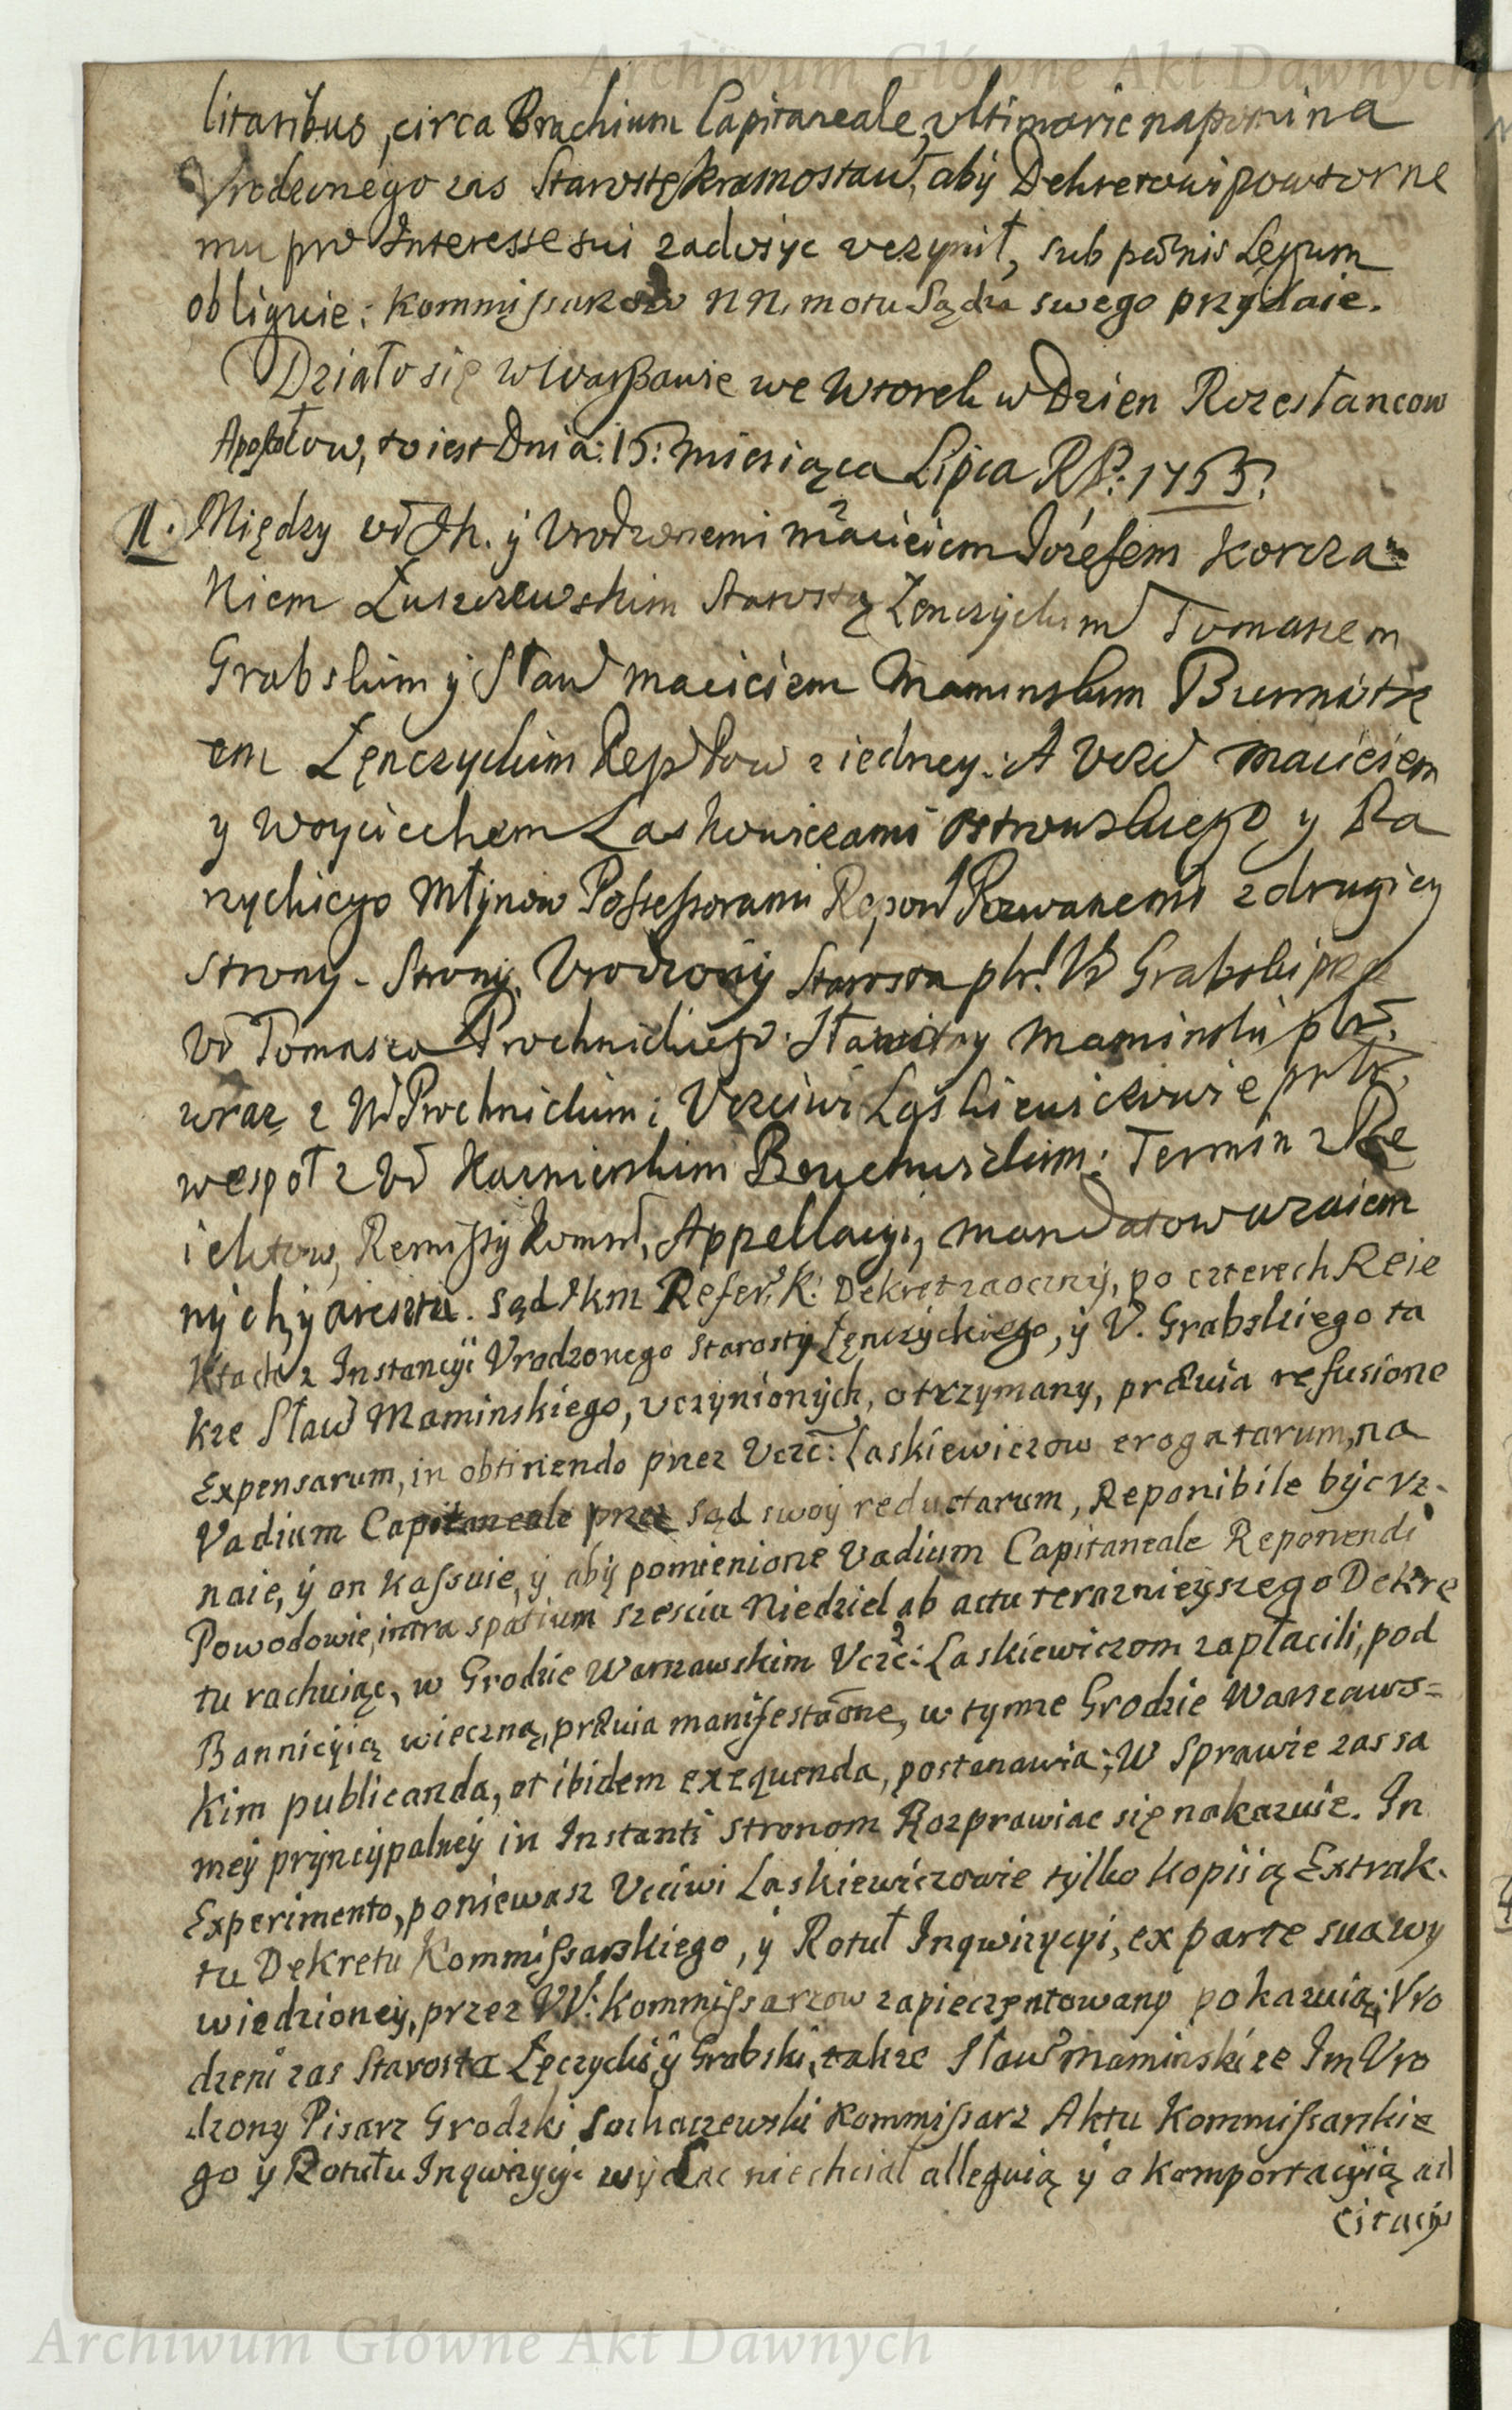 Archiwum Główne Akt Dawnych
litaribus, circa Brachium Capitaneale, ultimarie napomina
Vrodzonego zas Starostę Krasnostaw, aby Dekretowi powtorne
mu pro Interesse sui zadosyc uczynił, sub pœnis Legum
obliguie: Kommissarzow NN. motu Sądu swego przydaie.
Działo się w Warszawie we Wtorek w Dzien Rozesłancow
Apostołow, to iest Dnia: 15: Miesiąca Lipca RP: 1755.
II. Między Jch. y Vrodzonemi Macieiem Józefem Korcza-
kiem Łuszczewskim Starostą Łenczyckim Tomaszem
Grabskim y Sław Macieiem Maminskim Burmistrz
em Łęnczyckim Powd z iedney: A Vczć Macieiem
y Woyciechem Laskowiczami Ostrowskiego y Ra
nyckiego Młynow Possessorami Pozwanemi z drugiey
strony. Strony Vrodzony Starosta Grabski prze
Tomasza Prochnickiego: Sławetny Maminski
wraz z W Prochnickim: Vczciwi Laskiewiczowie
wespoł z Kazmierskim: Termin z Re
iektow, Remissy Appellacyi, Mandatow wzaiem
nych, y aresztu. Sąd JKM Refer: K: Dekret zaoczny, po czterech Reie
ktach z Instancyi Vrodzonego Starosty Łęnczyckiego, y V. Grabskiego ta
kze Sław Maminskiego, uczynionych, otrzymany, prævia refusione
Expensarum, in obtinendo przez Vczc: Laskiewiczow erogatarum, na
Vadium Capitaneale przez Sąd swoy reductarum, Reponibile być vz-
naie, y on kassuie, y aby pomienione Vadium Capitaneale Reponendi
Powodowie, intra spatium szesciu Niedziel ab actu teraznieyszego Dekre
tu rachuiąc, w Grodzie Warszawskim Vczć: Laskiewiczom zapłacili, pod
Bannicyią wieczną, prævia manifestaõne, w tymze Grodzie Warszaws=
kim publicanda, et ibidem exequenda, postanawia; W Sprawie zas sa
mey pryncypalney in Instanti stronom Rozprawiac się nakazuie. In
Experimento, poniewasz Vcciwi Laskiewiczowie tylko Kopiią Extrak-
tu Dekretu Kommissarskiego, y Rotuł Inqwizycyi, ex parte sua wy
wiedzioney, przez VV: Kommissarzow zapieczęntowany pokazuią; Vro
dzeni zas Starosta Łęczycki y Grabski, takze Sław Maminski ze Im Vro
dzony Pisarz Grodzki Sochaczewski Kommissarz Aktu Kommissarskie
go y Rotułu Inqwizycyi wydac niechciał alleguią y o komportacyią ad
citacyi
Archiwum Główne Akt Dawnych